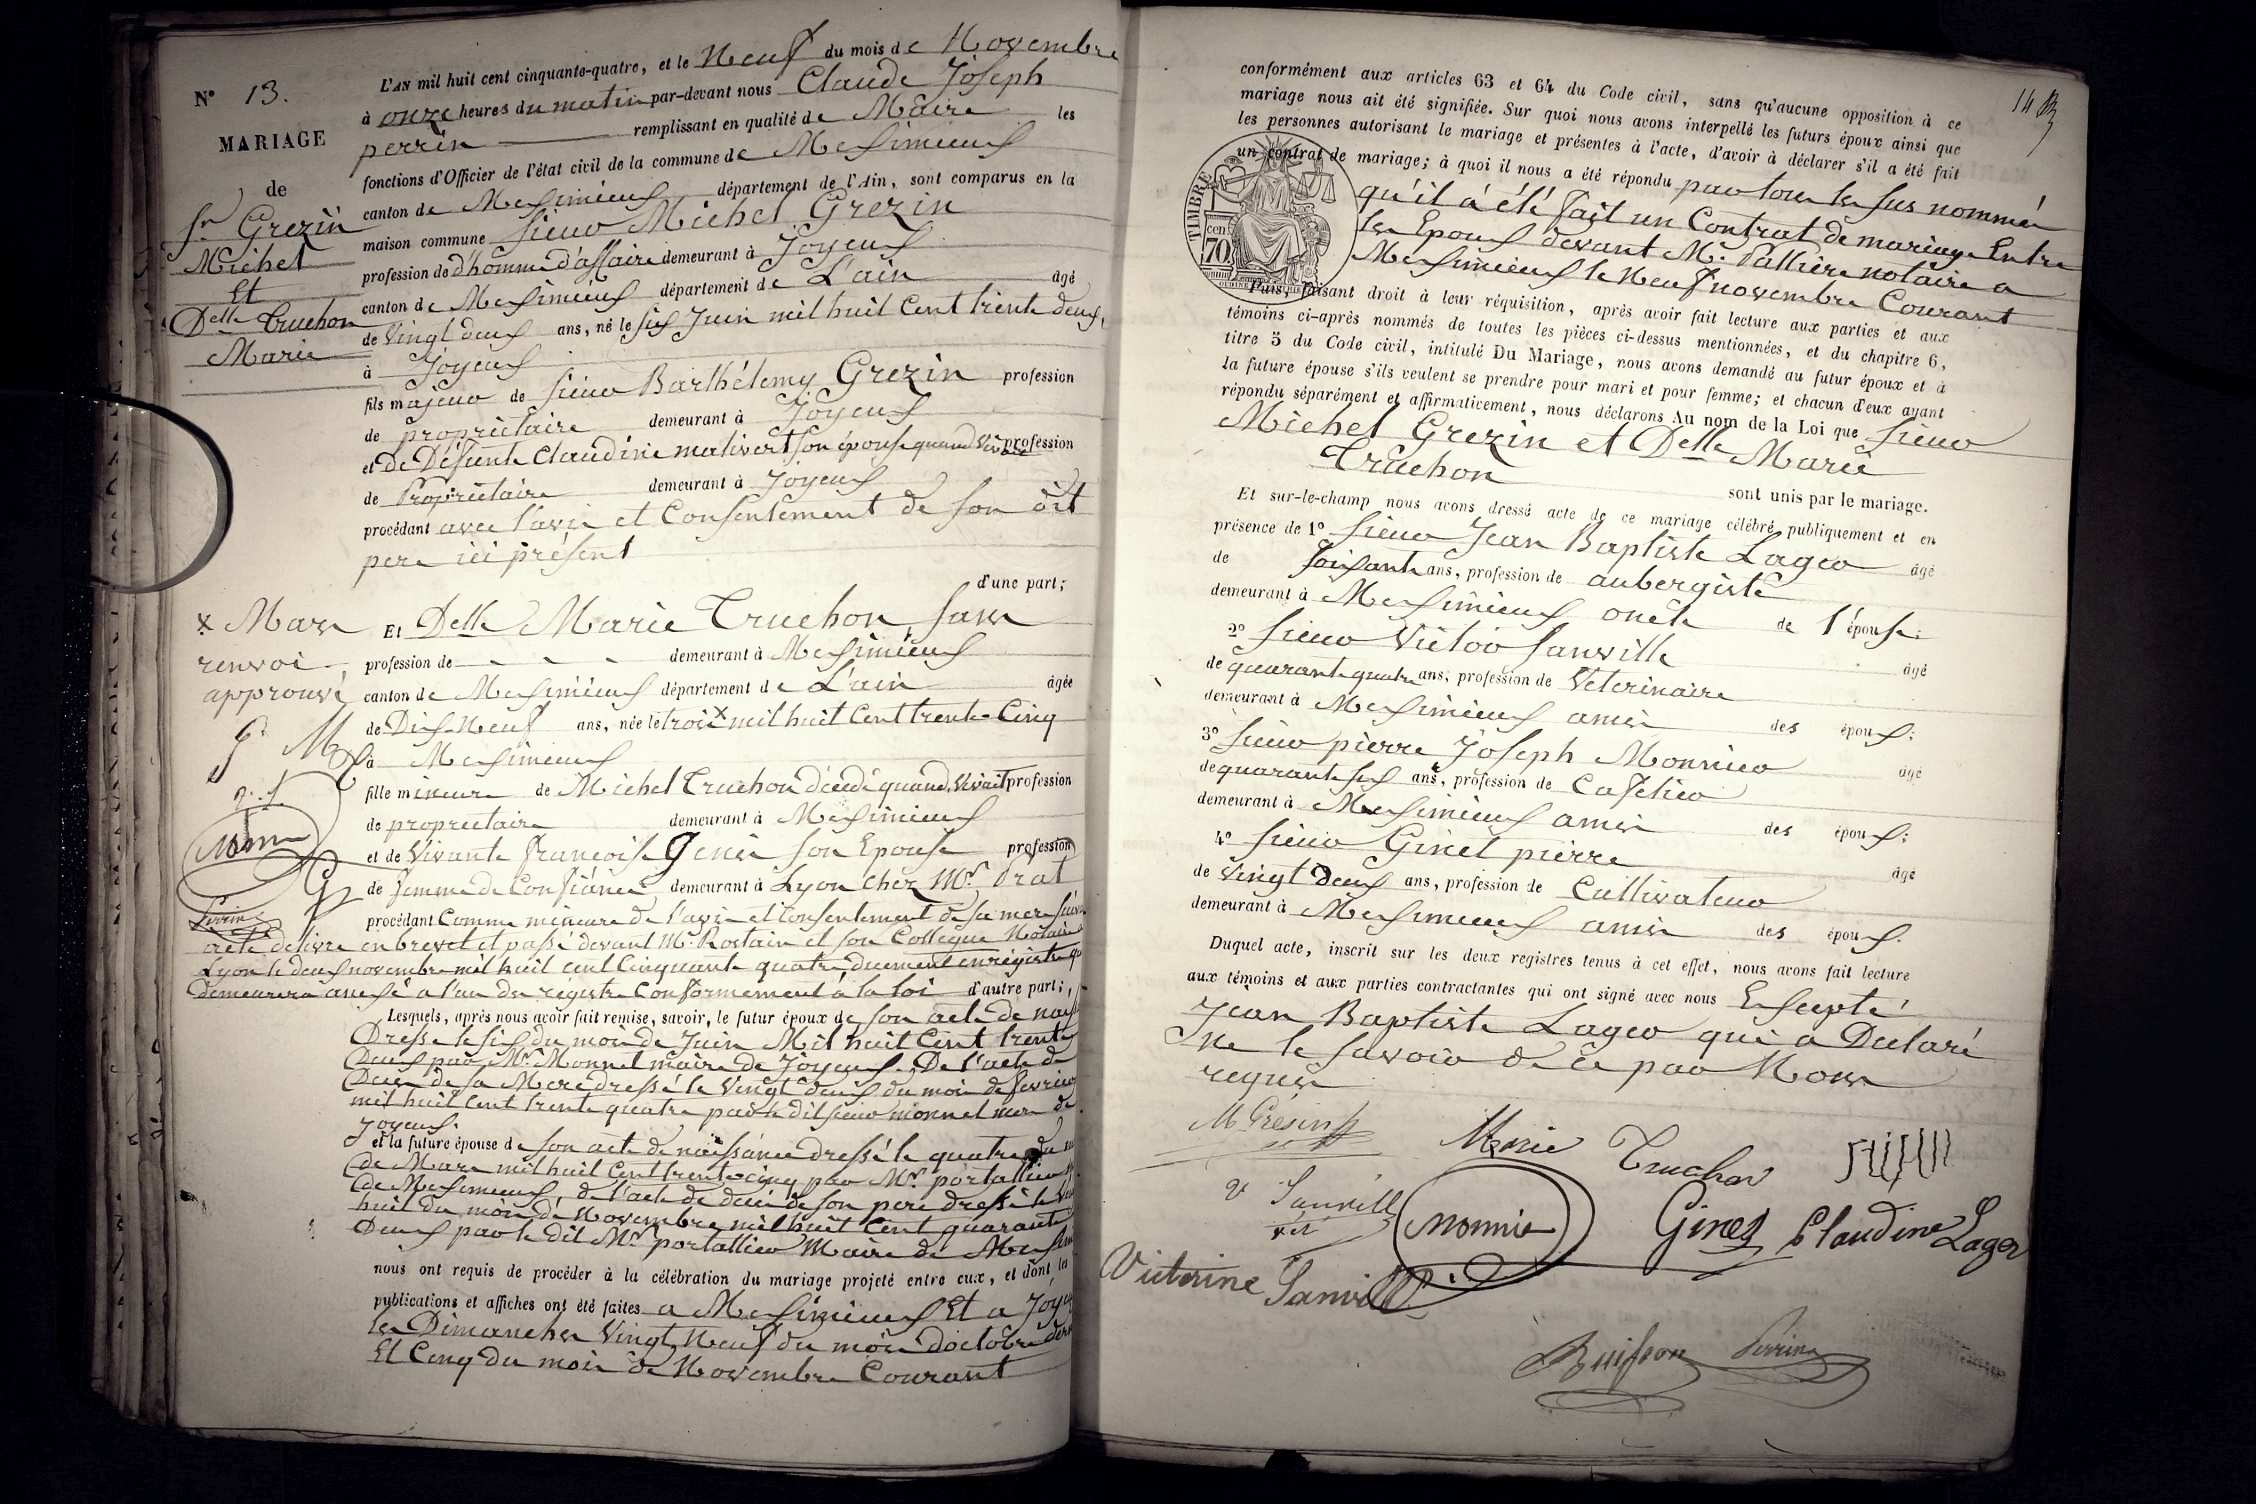 N° 13.
MARIAGE
de
Sr Grezin
Michel
Et
Delle Truchon
Marie
L'AN mil huit cent cinquante-quatre, et le Neuf du mois de Novembre
à onze heures du matin par-devant nous Claude Joseph
perrin remplissant en qualité de Maire les
fonctions d'Officier de l'état civil de la commune de Meximieux
canton de Meximieux département de l'Ain, sont comparus en la
maison commune sieur Michel Grezin
profession de d'homme d'affaire demeurant à Joyeux
canton de Meximieux département de L'ain âgé
de Vingt deux ans, né le six Juin mil huit Cent trente deux,
à Joyeux
fils majeur de sieur Barthélemy Grezin profession
de propriètaire demeurant à Joyeux
et de Défunte Claudine mativert son épouse quand vivait profession
de Propriètaire demeurant à Joyeux
procédant avec l'avis et Consentement de son dit
pere ici présent
d'une part;
x Mars
renvoi
approuvé
Et Delle Marie Truchon sans
profession de - - - demeurant à Meximieux
canton de Meximieux département de L'ain âgée
de Dix-Neuf ans, née le trois x mil huit Cent trente Cinq
à Meximieux
fille mineure de Michel Truchon décédé quand vivait profession
de proprietaire demeurant à Meximieux
et de Vivante françoise Genis son Epouse profession
de femme de Confiance demeurant à Lyon chez Mr. Prat
procédant Comme mineure de l'avis et Consentement de sa mere suivant
acte délivré en brevet et passé devant Me. Rostain et son Collegue Notaires
Lyon le deux novembre mil huit cent Cinquante quatre duement enregistré qui
demeurera anexé a l'un des registre Conformement à la loi d'autre part;
Lesquels, après nous avoir fait remise, savoir, le futur époux de son acte de nais
Dressé le six du mois de Juin Mil huit Cent trente
Deux par Mr. Monnet maire de Joyeux. De l'acte de
Décès de sa Mere dressé le Vingt deux du mois de fevrier
mil huit Cent trente quatre par le dit sieur monnet maire de
Joyeux.
et la future épouse de son acte de naissance dressé le quatre du
de Mars mil huit Cent trente cinq par Mr. portallier
de Meximieux, de l'acte de décès de son pere dressé le
huit du mois de Novembre mil huit Cent quarante
Deux par le dit Mr. portallier Maire de Mexim
nous ont requis de procéder à la célébration du mariage projeté entre eux, et dont les
publications et affiches ont été faites a Meximieux Et a Joyeux
les Dimanches Vingt Neuf du mois d'octobre dern
Et Cinq du mois de Novembre Courant
14
conformément aux articles 63 et 64 du Code civil, sans qu'aucune opposition à ce
mariage nous ait été signifiée. Sur quoi nous avons interpellé les futurs époux ainsi que
les personnes autorisant le mariage et présentes à l'acte, d'avoir à déclarer s'il a été fait
un contrat de mariage; à quoi il nous a été répondu par tous les sus nommés
qu'il à été fait un Contrat de mariage Entre
les Epoux devant Me. Pallière notaire a
Meximieux le Neuf novembre Courant
TIMBRE
70 cen.
Puis, faisant droit à leur réquisition, après avoir fait lecture aux parties et aux
témoins ci-après nommés de toutes les pièces ci-dessus mentionnées, et du chapitre 6,
titre 5 du Code civil, intitulé Du Mariage, nous avons demandé au futur époux et à
la future épouse s'ils veulent se prendre pour mari et pour femme; et chacun d'eux ayant
répondu séparément et affirmativement, nous déclarons Au nom de la Loi que sieur
Michel Grezin et Delle Marie
Truchon
sont unis par le mariage.
Et sur-le-champ nous avons dressé acte de ce mariage célébré publiquement et en
présence de 1° sieur Jean Baptiste Lager âgé
de soixante ans, profession de aubergiste
demeurant à Meximieux oncle de l'épouse;
2° sieur Victor Sanville âgé
de quarante quatre ans, profession de Veterinaire
demeurant à Meximieux amis des époux;
3° sieur pierre Joseph Monnier âgé
de quarante six ans, profession de Cafetier
demeurant à Meximieux amis des époux;
4° sieur Ginet pierre âgé
de Vingt deux ans, profession de Cultivateur
demeurant à Meximieux amis des époux.
Duquel acte, inscrit sur les deux registres tenus à cet effet, nous avons fait lecture
aux témoins et aux parties contractantes qui ont signé avec nous Excepté
Jean Baptiste Lager qui a Déclaré
Ne le savoir de ce par Nous
requis
M Grésin
Marie Truchon
v Sanville
vet
Monnier
Ginet
Claudine Lager
Victorine Sanville
Buisson
Perrin